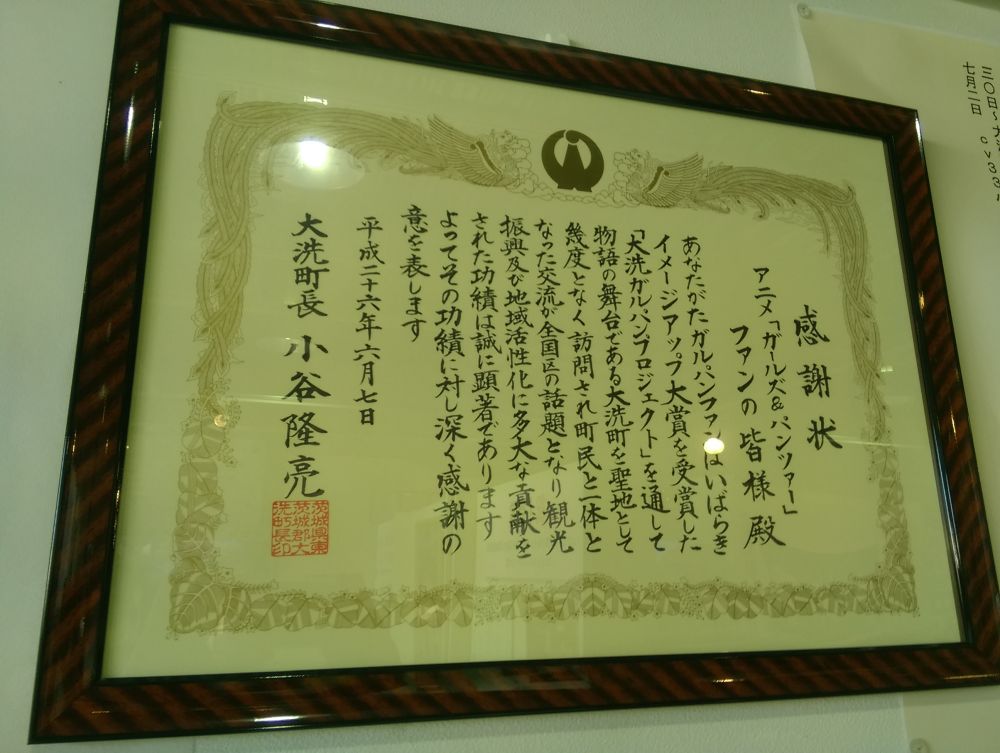 感謝状
アニメ「ガールズ&パンツァー」
ファンの皆様 殿
あなたがたガルパンファンはいばらき
イメージアップ大賞を受賞した
「大洗ガルパンプロジェクト」を通して
物語の舞台である大洗町を聖地として
幾度となく訪問され町民と一体と
なった交流が全国区の話題となり観光
振興及び地域活性化に多大な貢献を
された功績は誠に顕著であります
よってその功績に対し深く感謝の
意を表します
平成二十六年六月七日
大洗町長 小谷隆亮
茨城県東
茨城郡大
洗町長印
三〇日～
七月二日